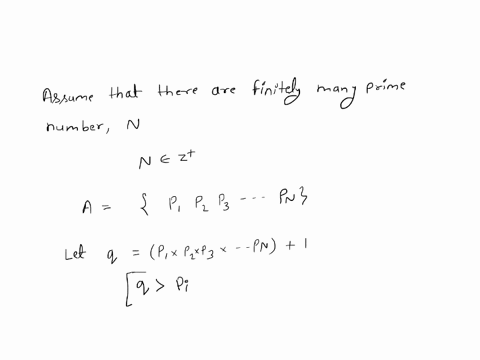 Assume that there are finitely many prime
number, N
N ∈ Z⁺
A = { P₁ P₂ P₃ --- P_N }
Let q = (P₁ × P₂ × P₃ × --- P_N) + 1
[q > Pᵢ